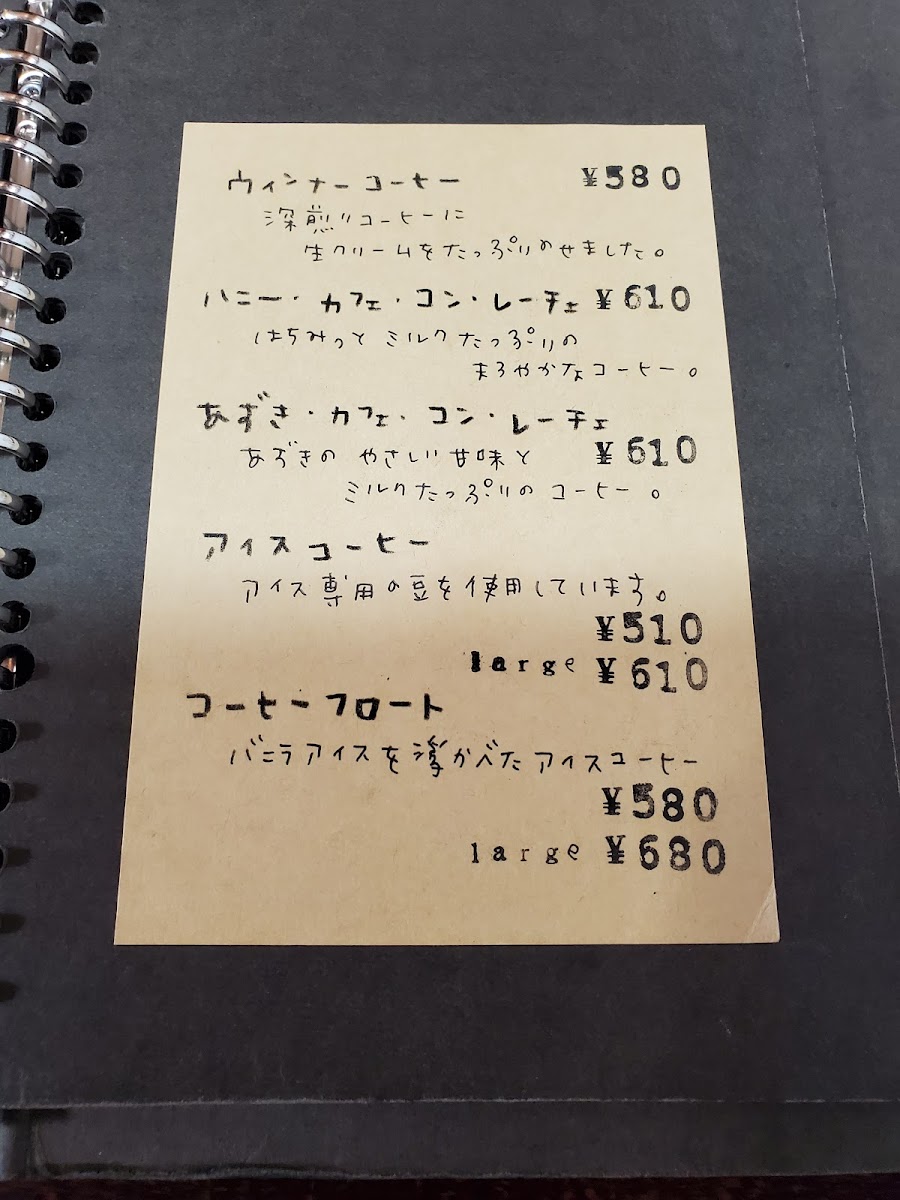 ウィンナーコーヒー ¥580
深煎りコーヒーに
生クリームをたっぷりのせました。
ハニー・カフェ・コン・レーチェ ¥610
はちみつと ミルクたっぷりの
まろやかなコーヒー。
あずき・カフェ・コン・レーチェ
あずきの やさしい甘味と ¥610
ミルクたっぷりの コーヒー。
アイスコーヒー
アイス専用の豆を使用しています。
¥510
large ¥610
コーヒーフロート
バニラアイスを浮かべたアイスコーヒー
¥580
large ¥680